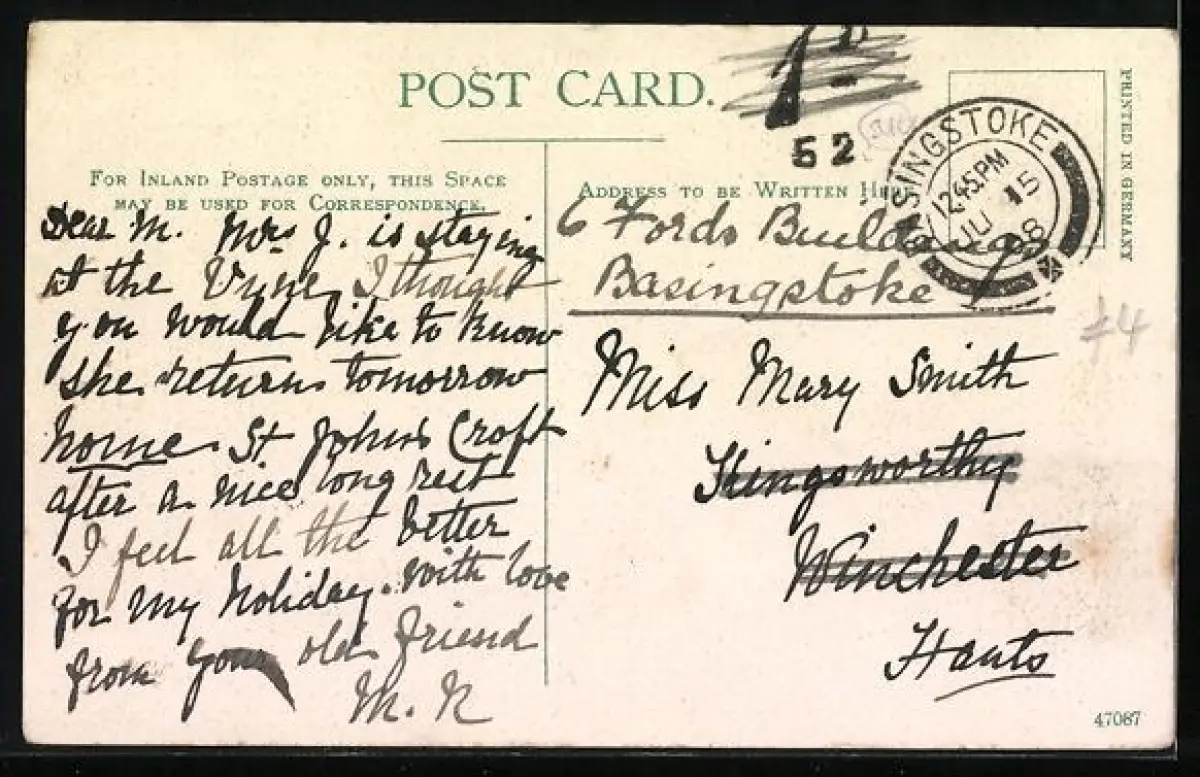 POST CARD.
1D
52
FOR INLAND POSTAGE ONLY, THIS SPACE
MAY BE USED FOR CORRESPONDENCE.
Dear M. Mrs J. is staying
at the Vyne I thought
you would like to know
she returns tomorrow
home St Johns Croft
after a nice long rest
I feel all the better
for my holiday. with love
from your old friend
M. R
ADDRESS TO BE WRITTEN HERE
BASINGSTOKE
12.45PM
JU 15
08
6 Fords Buildings
Basingstoke
Miss Mary Smith
Kingsworthy
Winchester
Hants
PRINTED IN GERMANY
47087